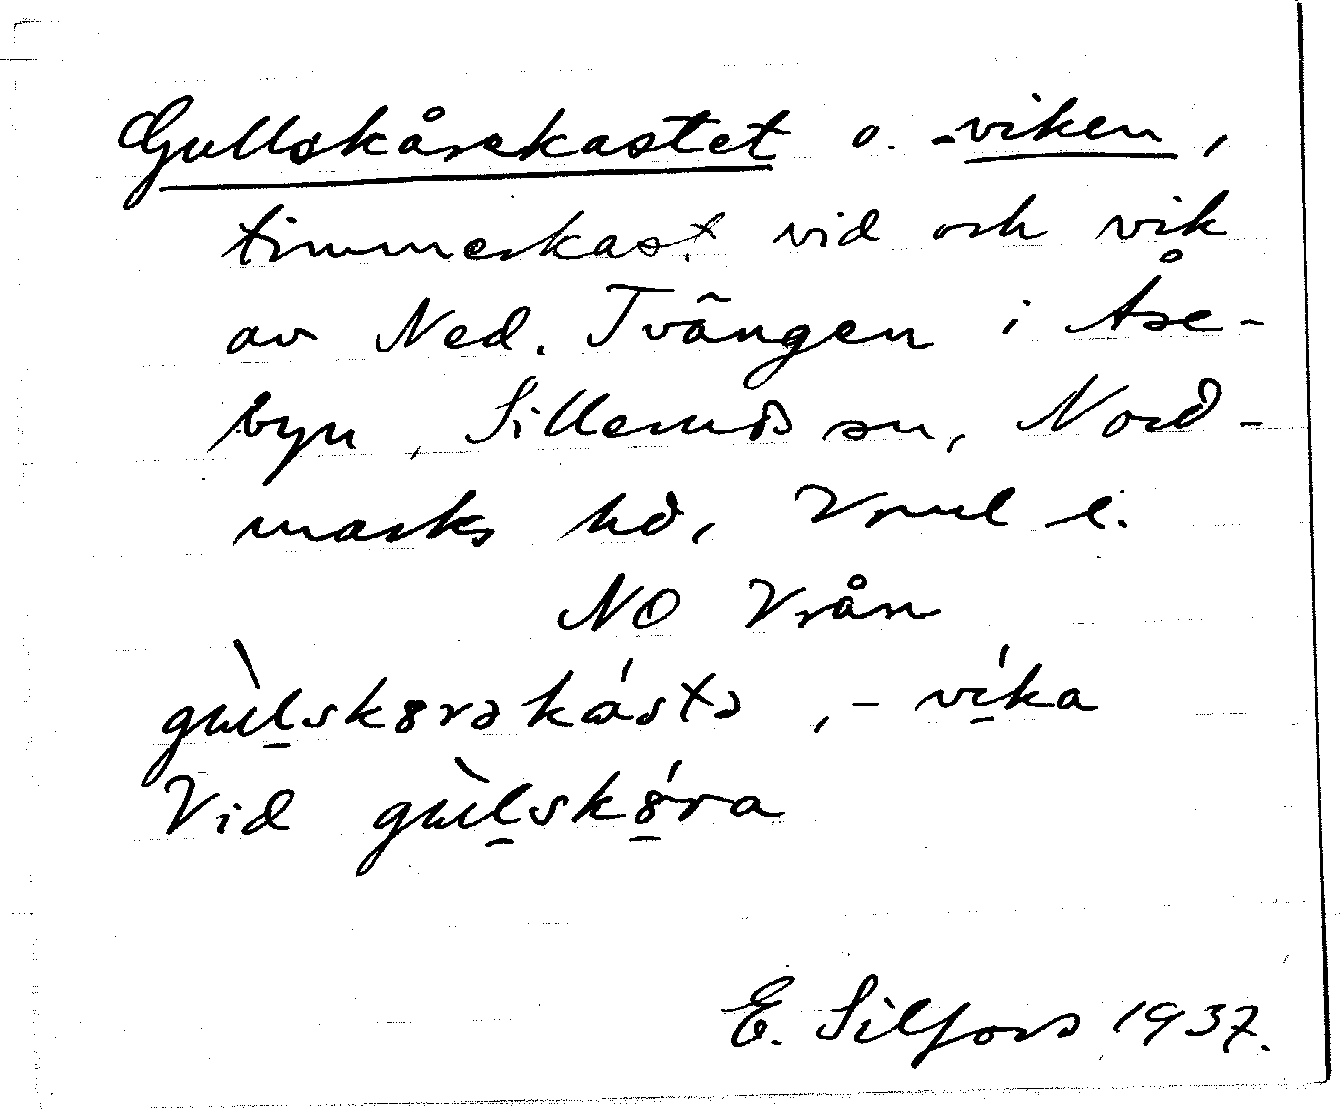 Gullskårekastet o. -viken,
timmerkast vid och vik
av Ned. Tvängen i Åse-
byn, Silleruds sn, Nord-
marks hd, Vrml l.
NO Vrån
gùl̠skȣrəkástə, - víka
Vid gùl̠skȣ́ra
E. Silfors 1937.